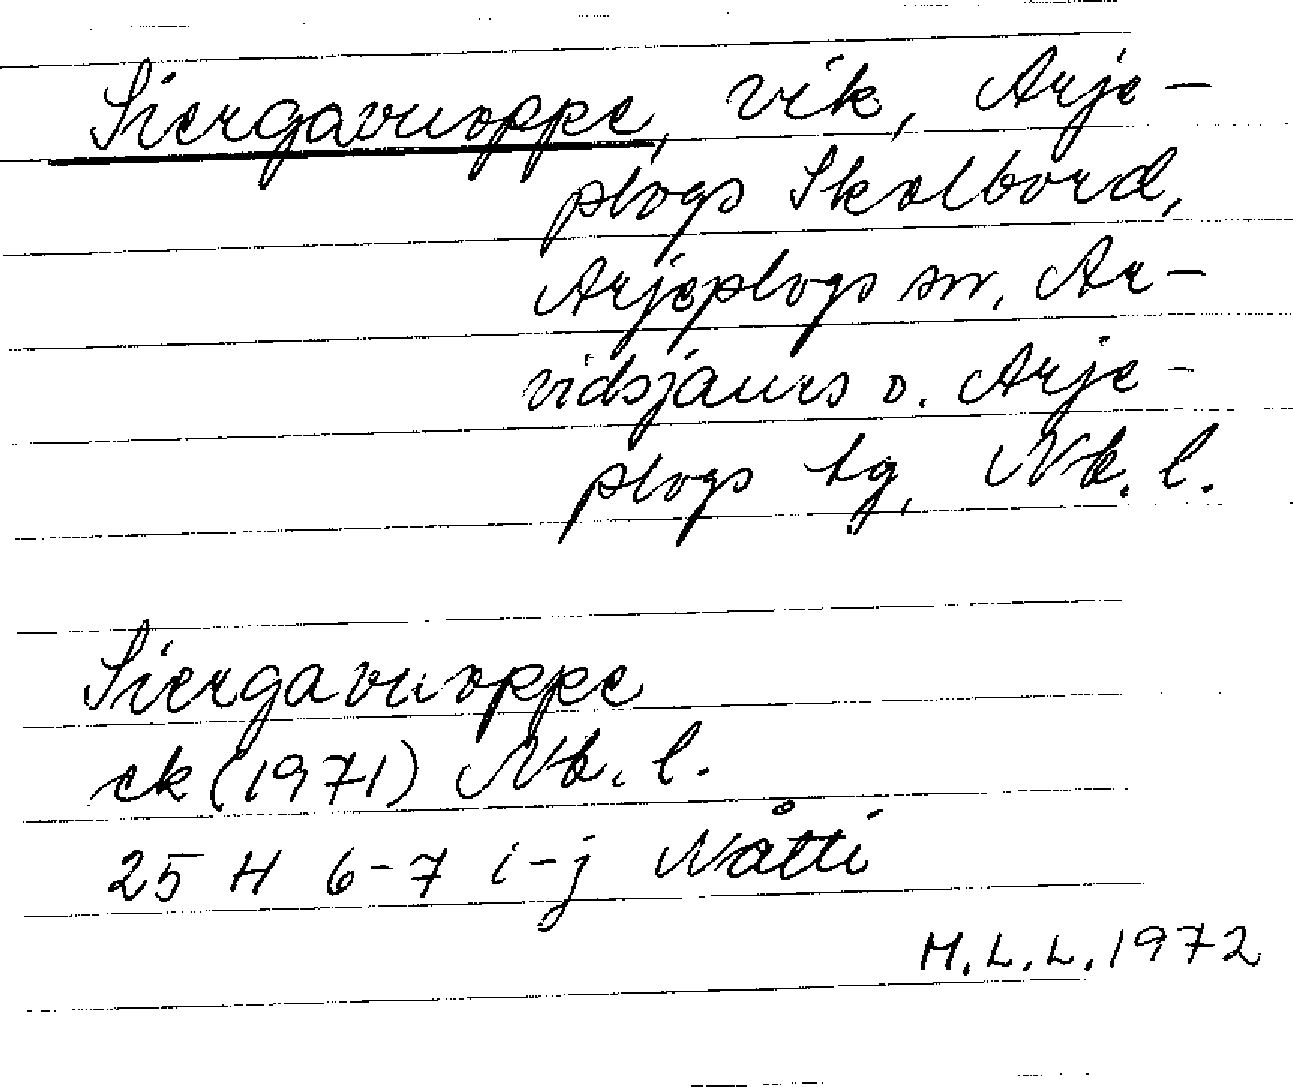 Siergavuoppe, vik, Arje-
plogs Skolbord,
Arjeplogs sn, Ar-
vidsjaurs o. Arje-
plogs tg, Nb. l.
Siergavuoppe
ek (1971) Nb. l.
25 H 6-7 i-j Nåtti
M.L.L. 1972